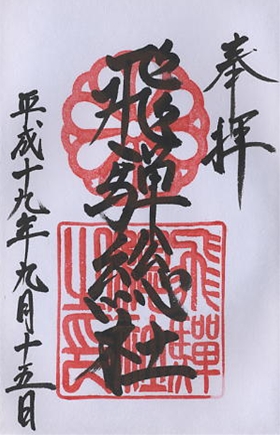 奉拝
飛騨総社
飛騨
総社
之印
平成十九年九月十五日